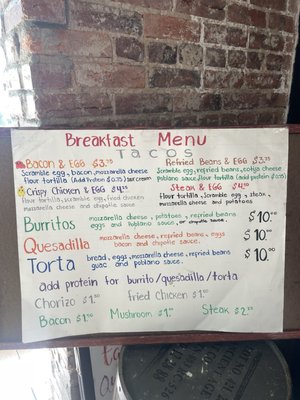 Breakfast Menu
Tacos
Bacon & EGG $3.75
Scramble egg, bacon, mozzarella cheese
flour tortilla (Add Protein $0.75) sour cream
Crispy Chicken & EGG $4.50
flour tortilla, scramble egg, fried chicken
mozzarella cheese and chipotle sauce
Refried Beans & EGG $3.75
Scramble egg, refried beans, cotija cheese
poblano sauce, flour tortilla (add protein $0.75)
Steak & EGG $4.50
Flour tortilla, Scramble egg, steak,
mozzarella cheese and potatoes
Burritos mozzarella cheese, potatoes, repried beans $10.00
eggs and poblano sauce or chipotle sauce
Quesadilla mozzarella cheese, repried beans, eggs $10.00
bacon and chipotle sauce.
Torta bread, eggs, mozzarella cheese, repried beans $10.00
guac and poblano sauce.
add protein for burrito/quesadilla/torta
Chorizo $1.00 fried Chicken $1.00
Bacon $1.00 Mushroom $1.00 Steak $2.00